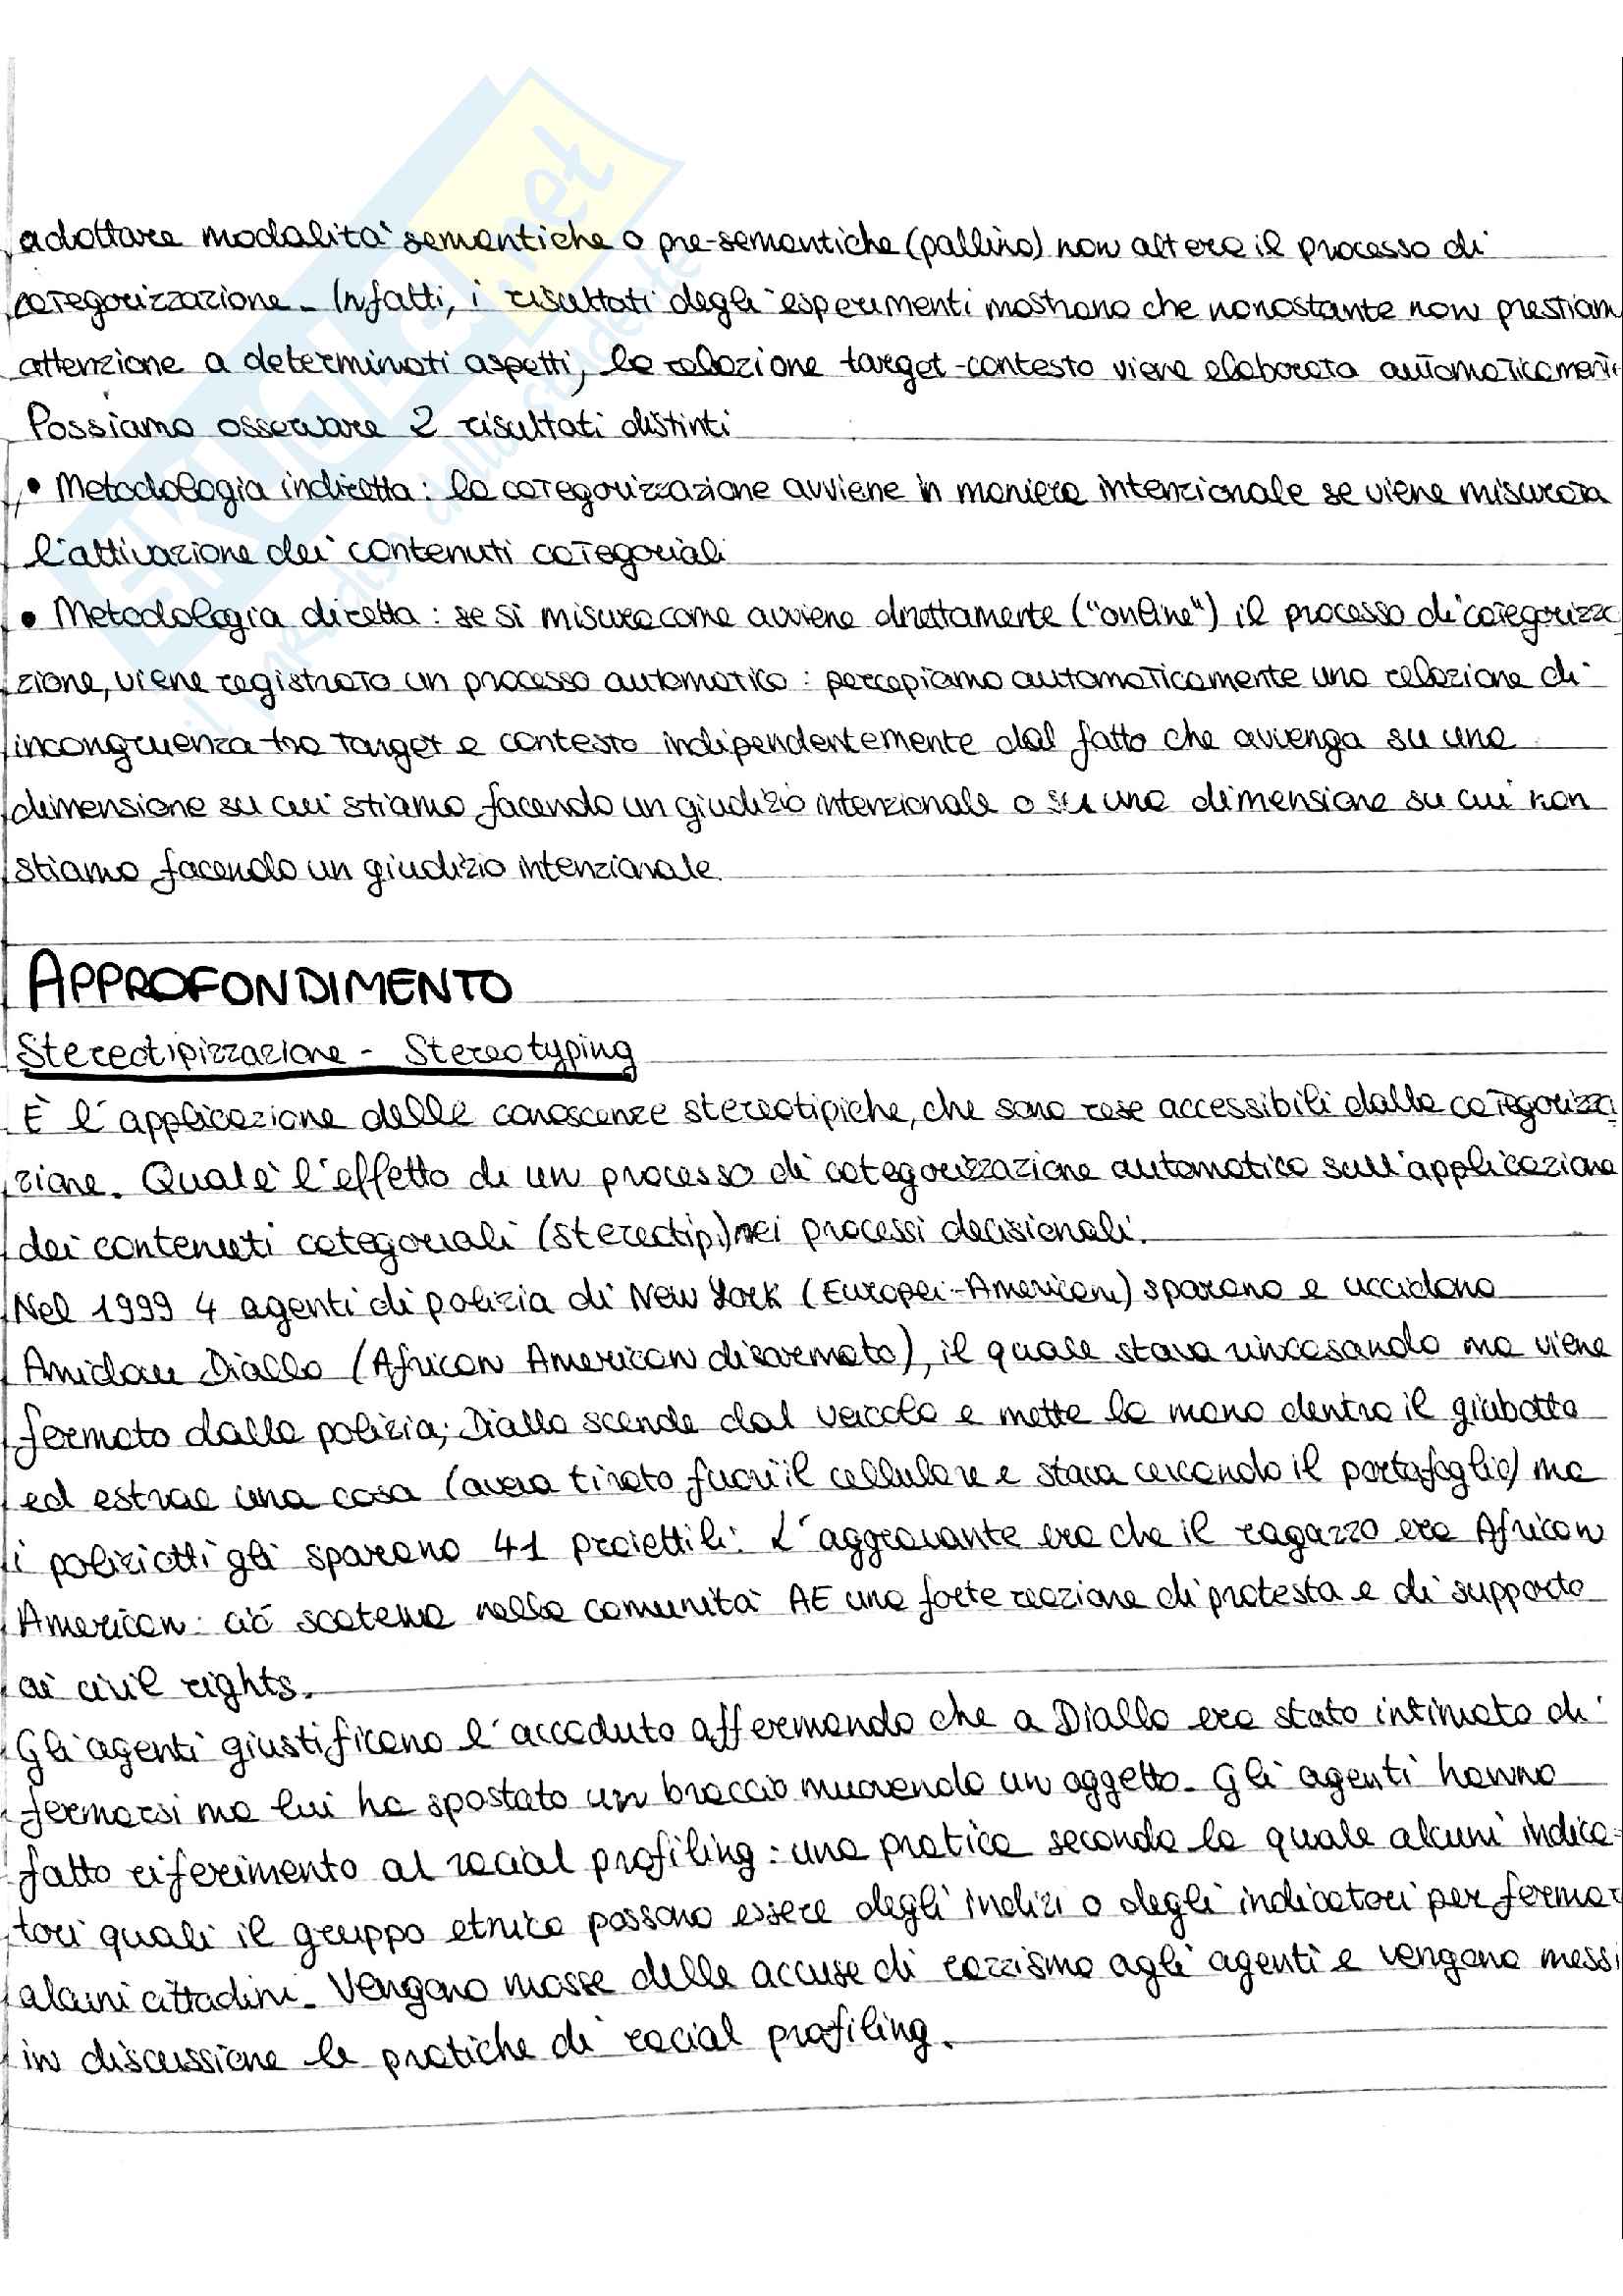 SKUOLA.net
il paradiso dello studente
adottare modalità semantiche o pre-semantiche (pallino) non altera il processo di
categorizzazione. Infatti, i risultati degli esperimenti mostrano che nonostante non prestiam
attenzione a determinati aspetti, la relazione target-contesto viene elaborata automaticament
Possiamo osservare 2 risultati distinti
• Metodologia indiretta: la categorizzazione avviene in maniera intenzionale se viene misurata
l'attivazione dei contenuti categoriali
• Metodologia diretta: se si misura come avviene direttamente ("online") il processo di categorizza
zione, viene registrato un processo automatico: percepiamo automaticamente una relazione di
incongruenza tra target e contesto indipendentemente dal fatto che avvenga su una
dimensione su cui stiamo facendo un giudizio intenzionale o su una dimensione su cui non
stiamo facendo un giudizio intenzionale.
APPROFONDIMENTO
Stereotipizzazione - Stereotyping
È l'applicazione delle conoscenze stereotipiche, che sono rese accessibili dalla categorizza
zione. Qual è l'effetto di un processo di categorizzazione automatico sull'applicazione
dei contenuti categoriali (stereotipi) nei processi decisionali.
Nel 1999 4 agenti di polizia di New York (Europei-Americani) sparano e uccidono
Amidou Diallo (African American disarmato), il quale stava rincasando ma viene
fermato dalla polizia; Diallo scende dal veicolo e mette la mano dentro il giubotto
ed estrae una cosa (aveva tirato fuori il cellulare e stava cercando il portafoglio) ma
i poliziotti gli sparano 41 proiettili. L'aggravante era che il ragazzo era African
American: ciò scatena nella comunità AE una forte reazione di protesta e di supporto
ai civil rights.
Gli agenti giustificano l'accaduto affermando che a Diallo era stato intimato di
fermarsi ma lui ha spostato un braccio muovendo un oggetto. Gli agenti hanno
fatto riferimento al racial profiling: una pratica secondo la quale alcuni indica-
tori quali il gruppo etnico possono essere degli indizi o degli indicatori per fermar
alcuni cittadini. Vengono mosse delle accuse di razzismo agli agenti e vengono messi
in discussione le pratiche di racial profiling.